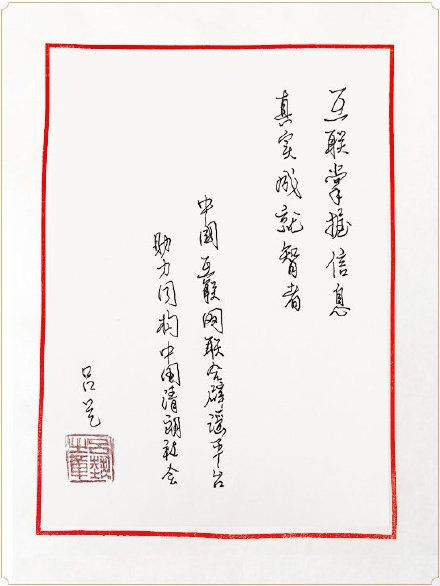 互联掌握信息
真实成就智者
中国互联网联合辟谣平台
助力同构中国清朗社会
吕艺
吕艺之章